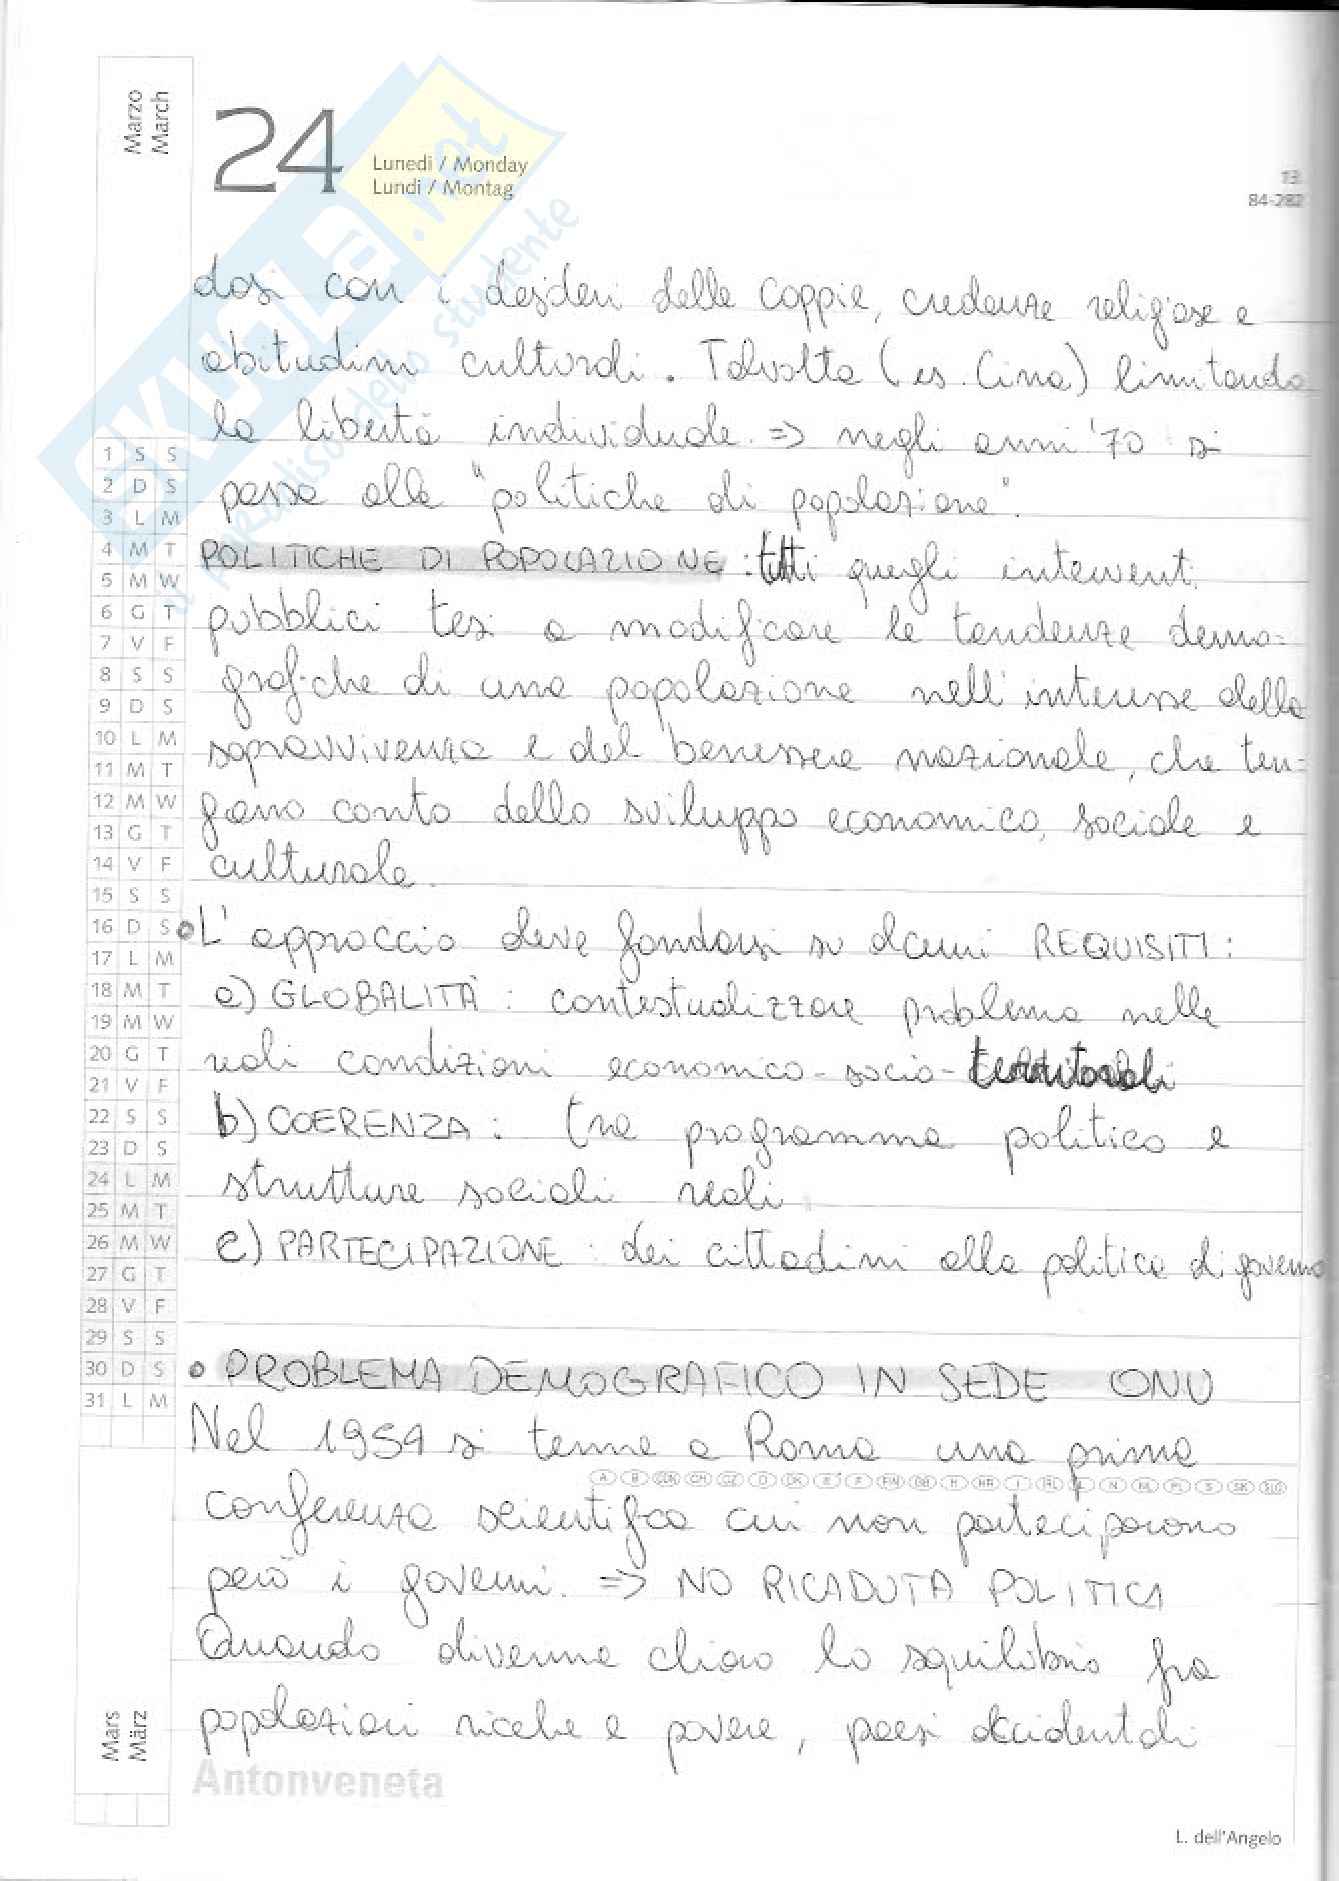 Marzo
March
24
Lunedì / Monday
Lundi / Montag
13
84-282
SKUOLA.net
il paradiso dello studente
dosi con i desideri delle coppie, credenze religiose e
abitudini culturali. Talvolta (es. Cina) limitando
la libertà individuale. => negli anni '70 si
passa alle "politiche di popolazione".
POLITICHE DI POPOLAZIONE: tutti quegli interventi
pubblici tesi a modificare le tendenze demo=
grafiche di una popolazione nell'interesse della
sopravvivenza e del benessere nazionale, che ten=
gano conto dello sviluppo economico, sociale e
culturale.
L'approccio deve fondarsi su alcuni REQUISITI:
a) GLOBALITÀ: contestualizzare problema nelle
reali condizioni economico-socio-territoriali
b) COERENZA: tra programma politico e
strutture sociali reali
c) PARTECIPAZIONE: dei cittadini alla politica di governo
• PROBLEMA DEMOGRAFICO IN SEDE ONU
Nel 1954 si tenne a Roma una prima
A B CH CZ D DK E F FIN GB H HR I IRL L N NL PL S SK SLO
conferenza scientifica cui non parteciparono
però i governi. => NO RICADUTA POLITICA
Quando divenne chiaro lo squilibrio fra
popolazioni ricche e povere, paesi occidentali
1 S S
2 D S
3 L M
4 M T
5 M W
6 G T
7 V F
8 S S
9 D S
10 L M
11 M T
12 M W
13 G T
14 V F
15 S S
16 D S
17 L M
18 M T
19 M W
20 G T
21 V F
22 S S
23 D S
24 L M
25 M T
26 M W
27 G T
28 V F
29 S S
30 D S
31 L M
Mars
März
Antonveneta
L. dell'Angelo